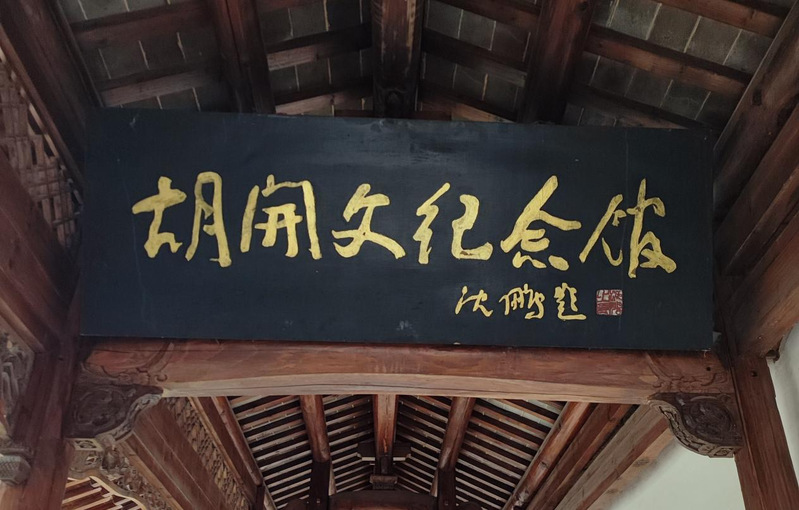 胡开文纪念馆
沈鹏题